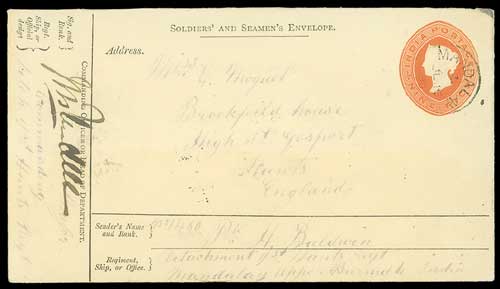 SOLDIERS' AND SEAMEN'S ENVELOPE.
INDIA POSTAGE
MANDALAY
Address.
Moquet
Brookfield house
High St Gosport
Hants
England
Sender's Name
and Rank.
Pte H. Baldwin
Regiment,
Ship, or Office.
Detachment 1st Hants Regt
Mandalay Upper Burmah India
Sig. and
Rank.
Regt.
Ship, or
Official
design
Commanding
1st Hants Regt
COMMANDING OFFICER OR HEAD OF DEPARTMENT.